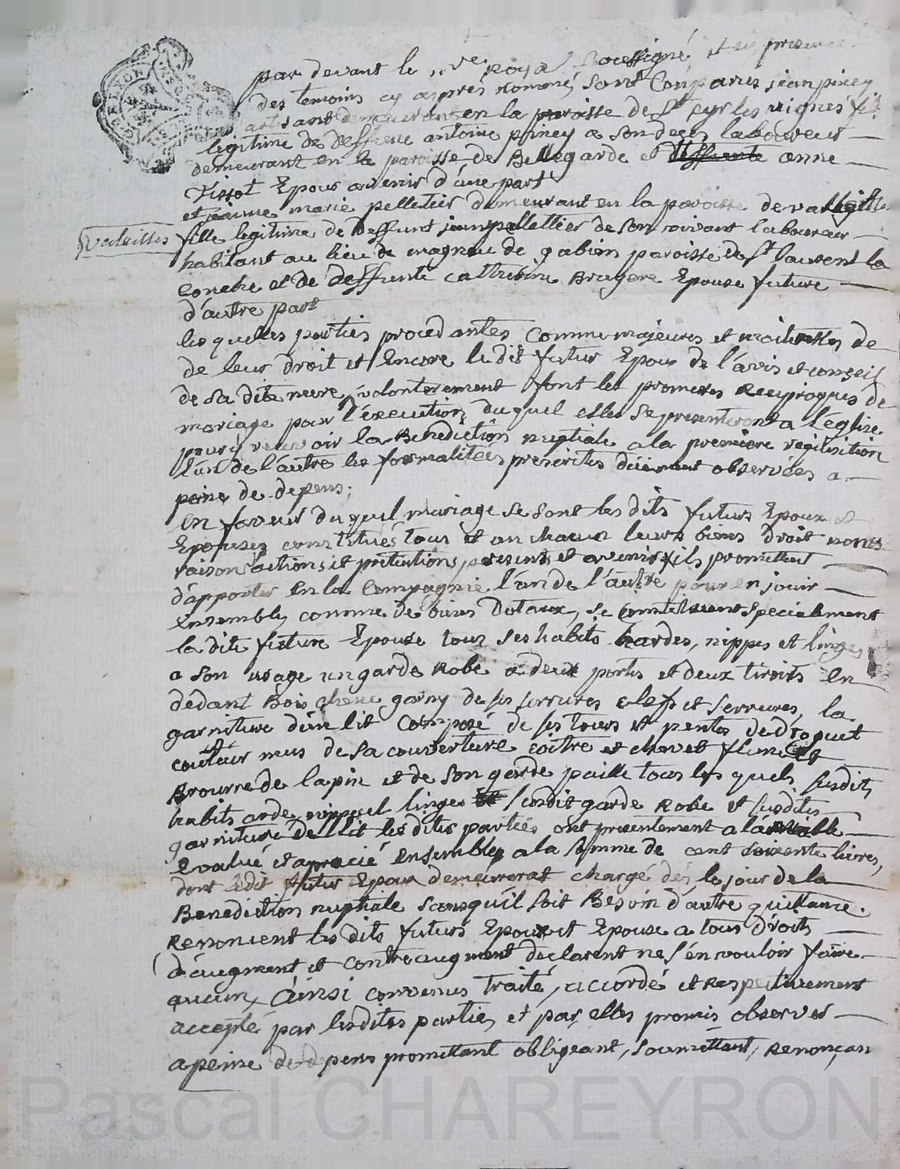 par devant le n.re royal soussigné et en presence
des temoins cy apres nommé sont comparus jean piney
artisant demeurant en la paroisse de St cyr les vignes fils
legitime de deffunt antoine piney a son deces laboureur
demeurant en la paroisse de Bellegarde et deffunte anne
Tissot Epoux avenir d'une part
et jeanne marie pelletier demeurant en la paroisse de valleille
valeilles
fille legitime de deffunt jean pellettier de son vivant laboureur
habitant au lieu de magneu de gabien paroisse de St laurent la
conche et de deffunte catherine Brugere Epouse future
d'autre part
lesquelles parties procedantes comme majeures et maitresses de
de leur droit et Encore ledit futur Epoux de l'avis et conseil
de sa dite mere, volonterement font les promesses Reciproques de
mariage pour l'execution duquel elles se presenteront a l'église
pour y recevoir la Benediction nuptiale a la premiere requisition
l'un de l'autre les formalitées prescrites düement observées a
peine de depens;
En faveur duquel mariage se sont les dits futurs Epoux et
Epouses constitués tous et un chacun leurs biens droit noms
raisons actions et pretentions presents et avenirs qu'ils promettent
d'apporter en la Compagnie l'un de l'autre pour en jouir
Ensembles comme de biens Dotaux, se constituent specialement
la dite future Epouse tous ses habits hardes, nippes et linges
a son usage un garde Robe a deux portes et deux tiroirs en
dedant Bois chene garny de ses ferrures clefs et serrures, la
garniture d'un lit composé de ses tours et pentes de droguet
couleur mus de sa couverture coitre et chevet
Bourre de lapin et de son garde paille tous lesquels susdits
habits arde nippes linges susdit garde Robe et susdites
garniture de lit les dites parties ont presentement a l'amiable
Evalué et aprecié Ensembles a la somme de cent soixente livres,
dont ledit futur Epoux demeurerat chargé dès le jour de la
Benediction nuptiale sans qu'il soit Besoin d'autre quittance.
Renoncent les dits futurs Epoux et Epouse a tous droits
d'augment et contre augment declarent ne s'en vouloir faire
aucun, Ainsi convenus traité, accordé et respectivement
accepté par les dites parties et par elles promis observer
a peine de depens promettant obligeant, soumettant, Renonçan
Pascal CHAREYRON